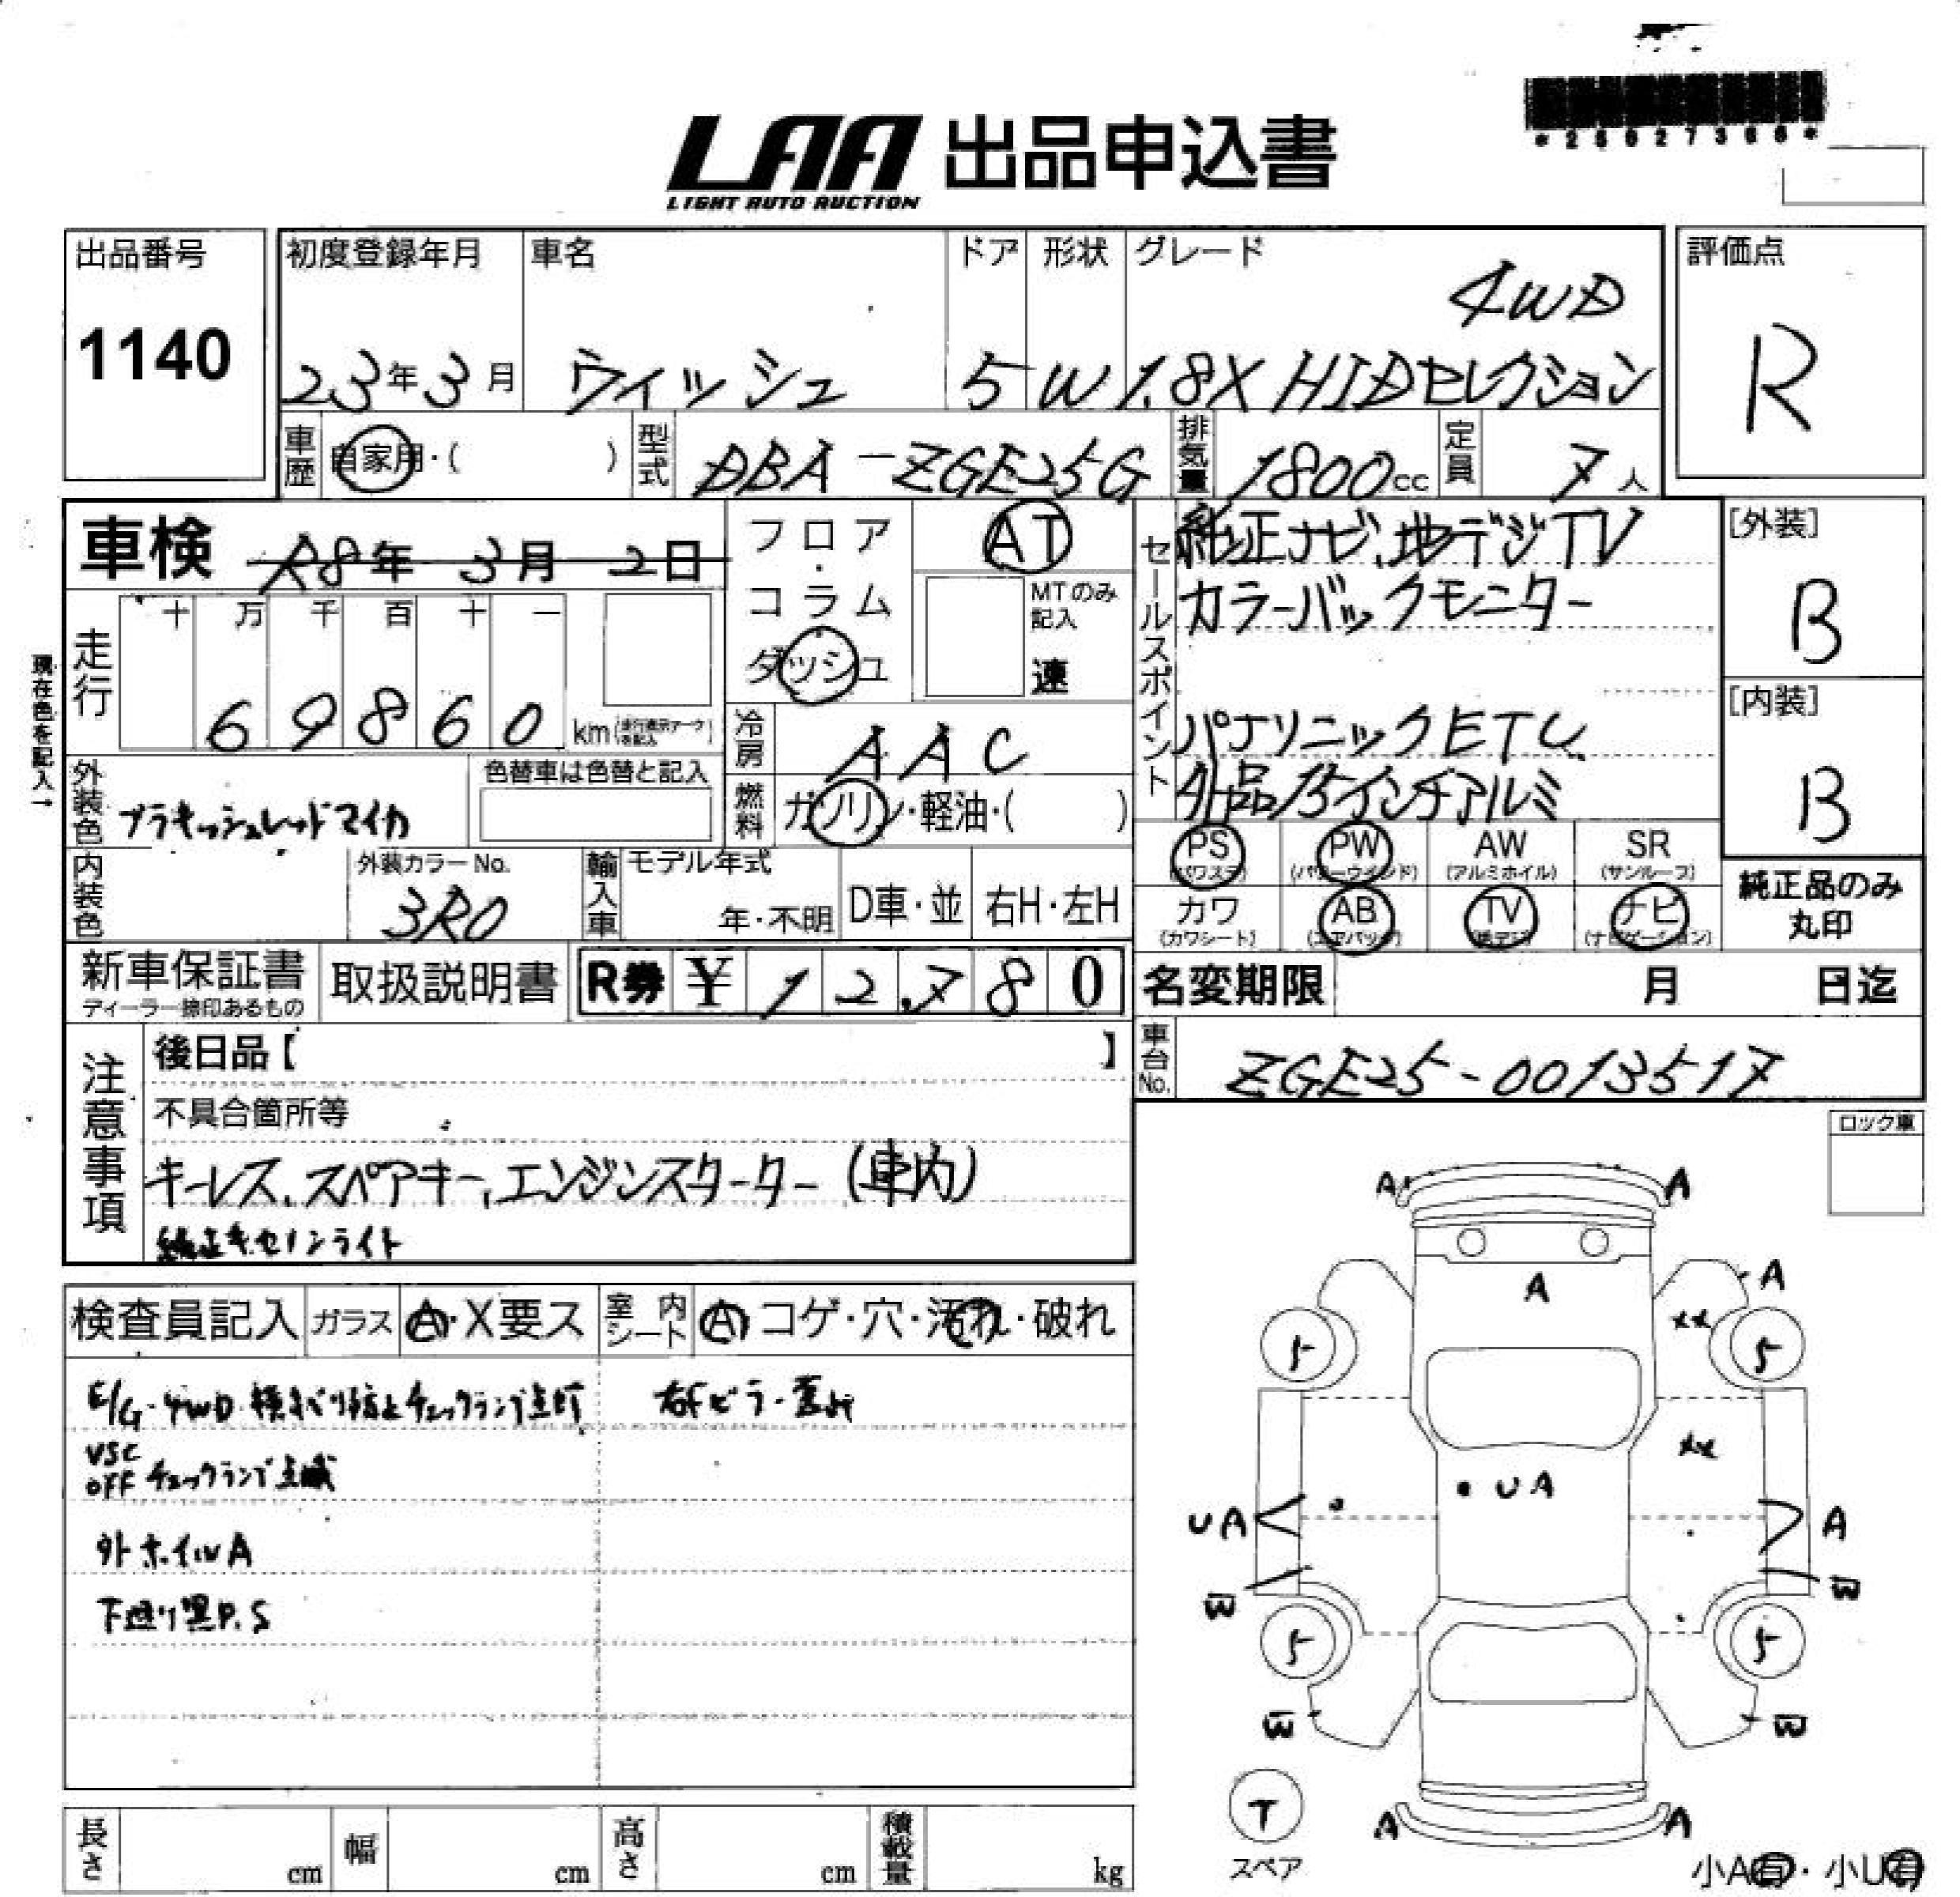 LAA 出品申込書
LIGHT AUTO AUCTION
出品番号
1140
初度登録年月
23年3月
車名
ウィッシュ
ドア
5
形状
W
グレード
4WD
1.8X HIDセレクション
評価点
R
車歴
自家用・( )
型式
DBA-ZGE25G
排気量
1800cc
定員
7人
車検 R8年 3月 2日
走行
十 万 千 百 十 一
69860 km
現在色を記入→
フロア・コラム
ダッシュ
AT
MTのみ記入
速
冷房
AAC
燃料
ガソリン・軽油・( )
外装色
ブラキッシュレッドマイカ
色替車は色替と記入
内装色
外装カラーNo.
3R0
輸入車
モデル年式
年・不明
D車・並
右H・左H
セールスポイント
純正ナビ、地デジTV
カラーバックモニター
パナソニックETC
外品15インチアルミ
[外装]
B
[内装]
B
PS
(パワステ)
PW
(パワーウインド)
AW
(アルミホイル)
SR
(サンルーフ)
カワ
(カワシート)
AB
(エアバッグ)
TV
(地デジ)
ナビ
(ナビゲーション)
純正品のみ
丸印
新車保証書
ディーラー捺印あるもの
取扱説明書
R券 ¥ 12,780
名変期限 月 日迄
車台No.
ZGE25-0013517
注意事項
後日品【 】
不具合箇所等
キーレス、スペアキー、エンジンスターター(車内)
純正キセノンライト
ロック車
検査員記入
ガラス
A・X要ス
室内シート
A コゲ・穴・汚れ・破れ
E/G・4WD・横滑り防止チェックランプ点灯
右Fピラー
VSC OFF チェックランプ点滅
外ホイルA
下廻り黒P.S
A A
A
A
XX
5 5
XX
・UA
UA A
W W
5 5
W W
T
スペア
A A
小A有・小U有
長さ cm
幅 cm
高さ cm
積載量 kg